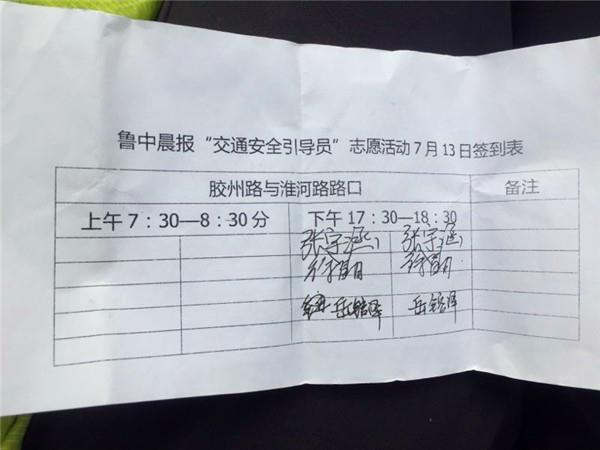 鲁中晨报“交通安全引导员”志愿活动7月13日签到表
胶州路与淮河路路口 备注
上午7：30—8：30分 下午17：30—18：30
张宇涵 张宇涵